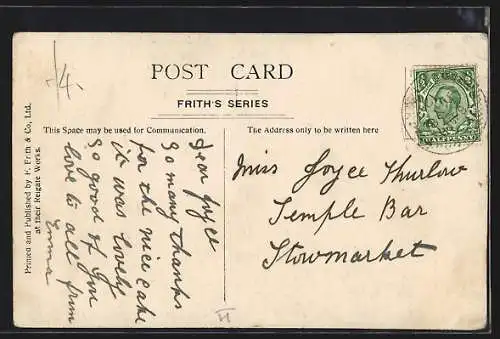 -/4.
POST CARD
FRITH'S SERIES
This Space may be used for Communication.
The Address only to be written here
Printed and Published by F. Frith & Co., Ltd.
at their Reigate Works.
Dear Joyce
So many thanks
for the nice cake
it was lovely
so good of you
love to all from
Emma
Miss Joyce Thurlow
Temple Bar
Stowmarket